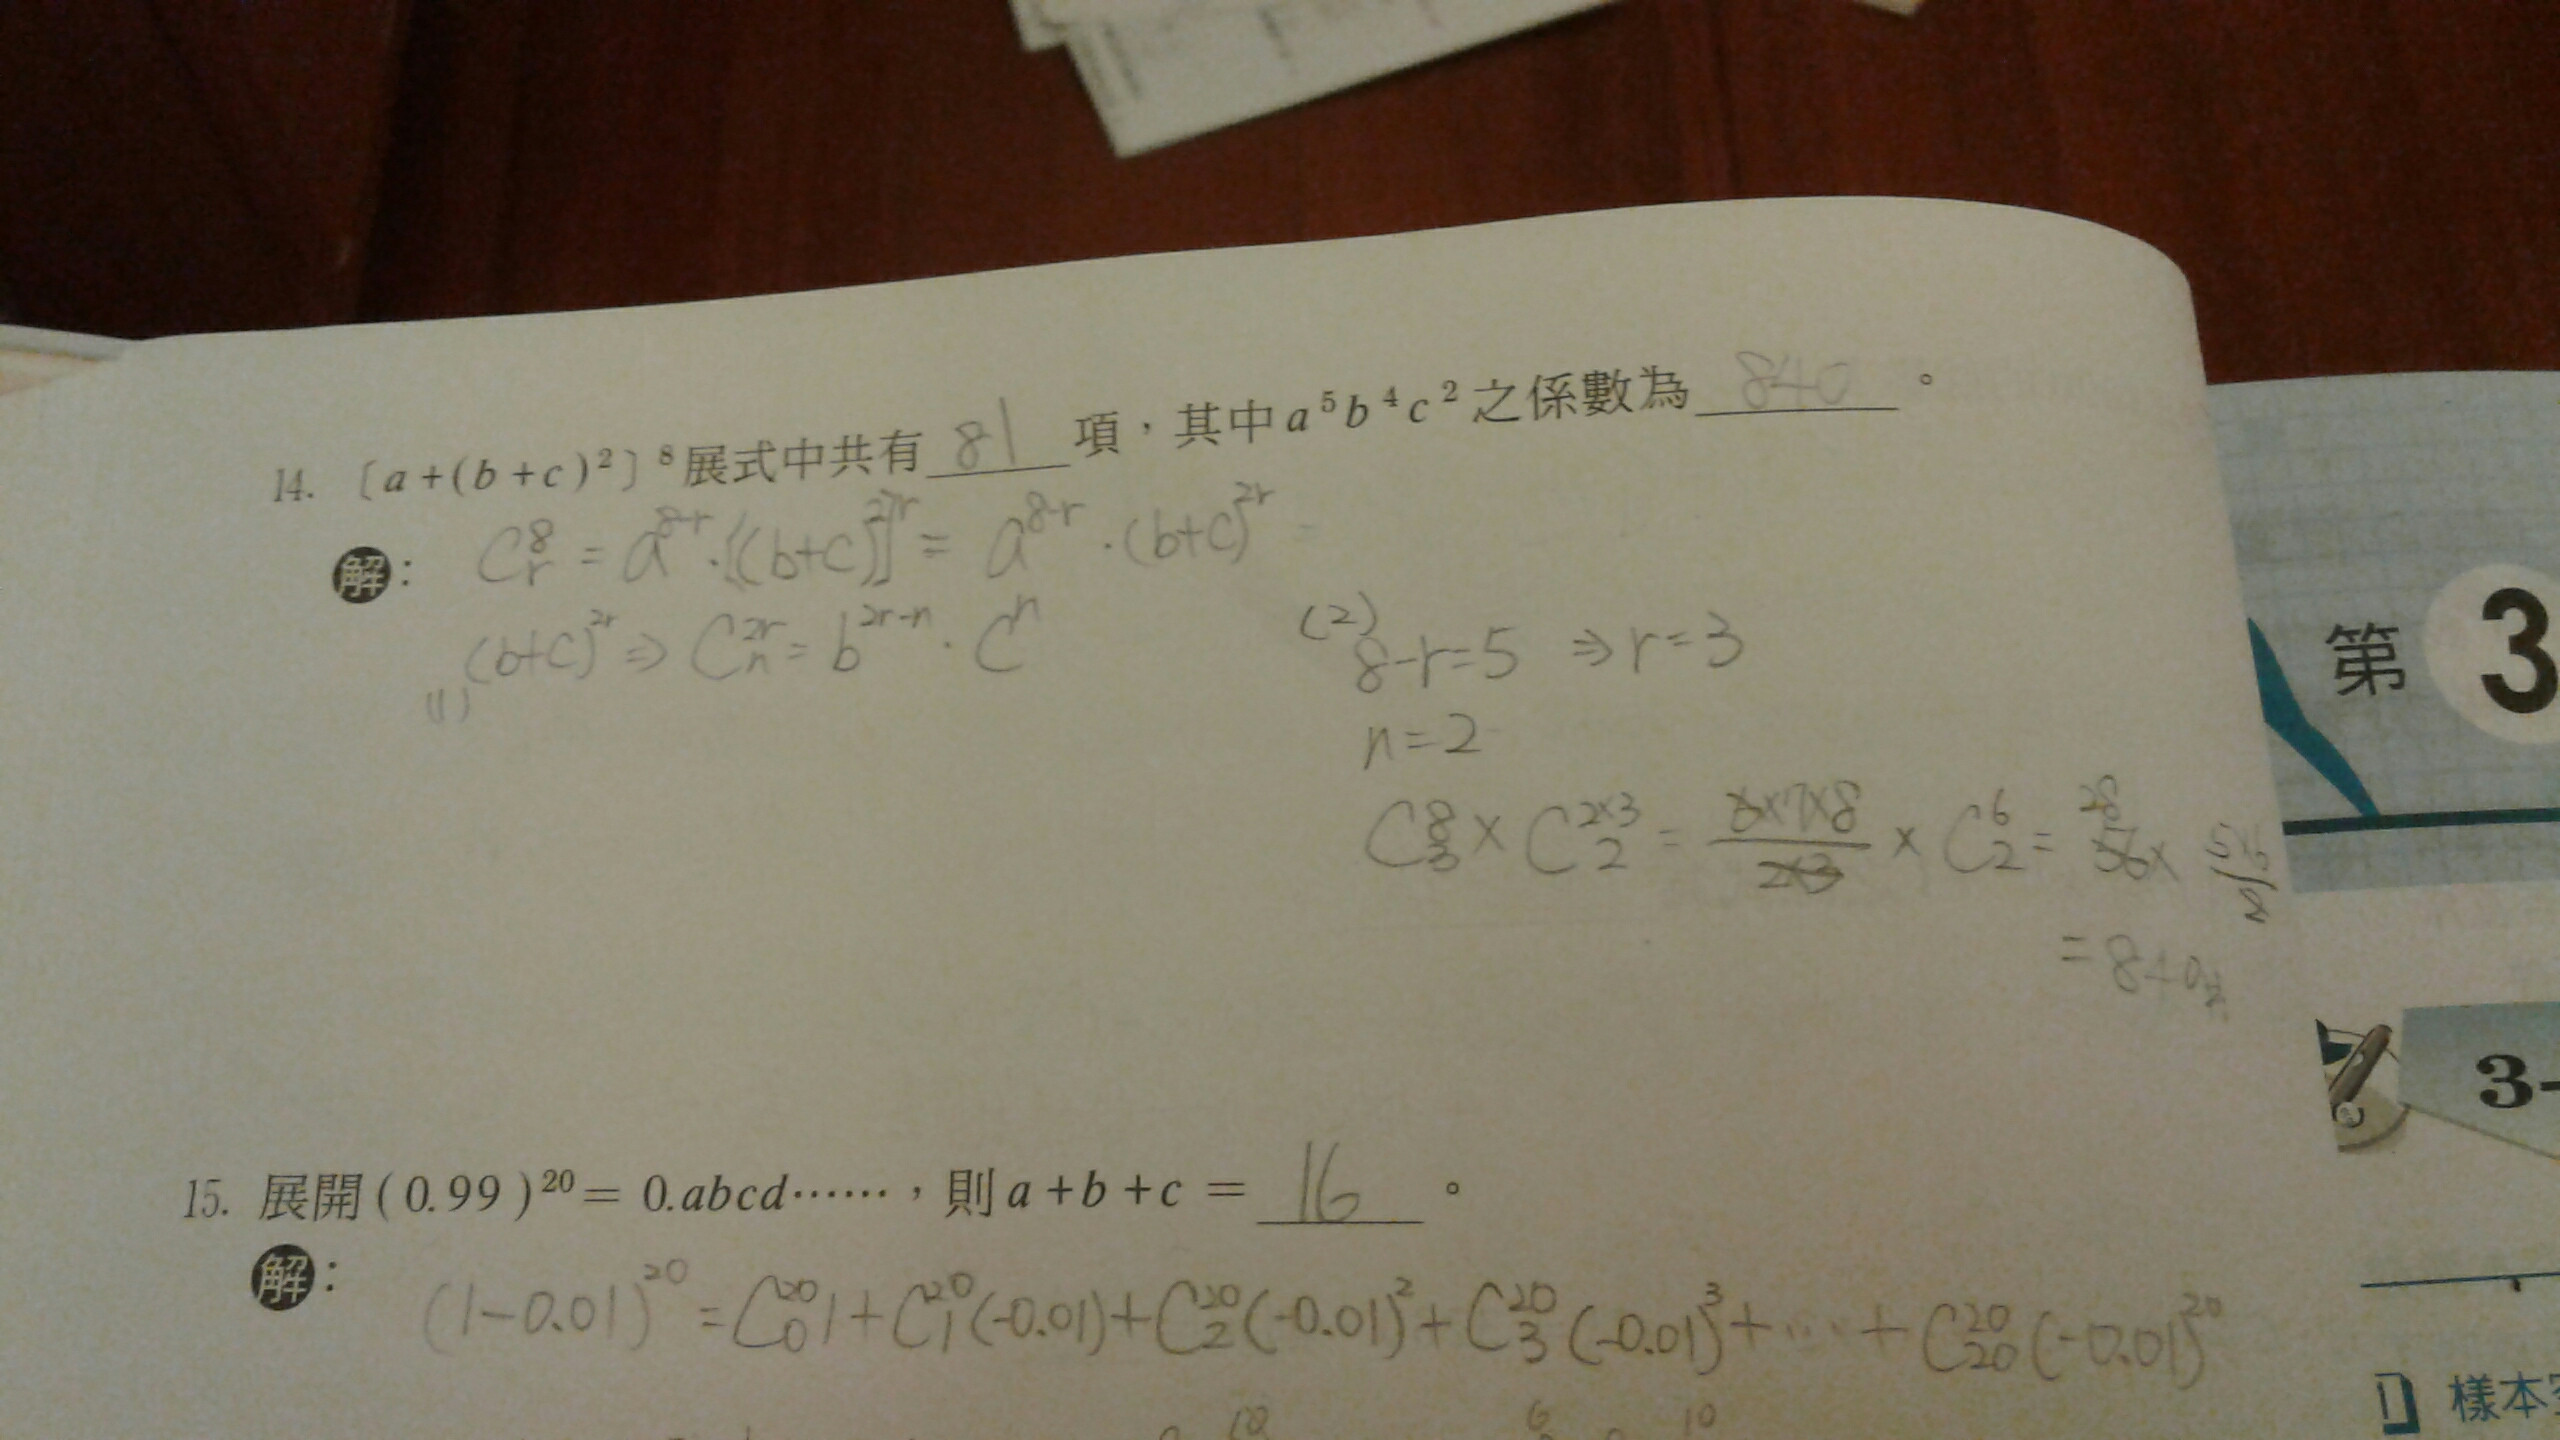 14. 〔a+(b+c)²〕⁸展式中共有 81 項，其中a⁵b⁴c²之係數為 840 。
解： C⁸ᵣ = a⁸⁻ʳ·[(b+c)²]ʳ = a⁸⁻ʳ·(b+c)²ʳ
(b+c)²ʳ ⇒ C²ʳₙ = b²ʳ⁻ⁿ·Cⁿ
(1)
(2) 8-r=5 ⇒ r=3
n=2
C⁸₃ × C²ˣ³₂ = 6×7×8/2×3 × C⁶₂ = 56×
= 840
15. 展開(0.99)²⁰= 0.abcd……，則a+b+c= 16 。
解： (1-0.01)²⁰ = C²⁰₀1+C²⁰₁(-0.01)+C²⁰₂(-0.01)²+C²⁰₃(-0.01)³+…+C²⁰₂₀(-0.01)²⁰
第3
3-
樣本